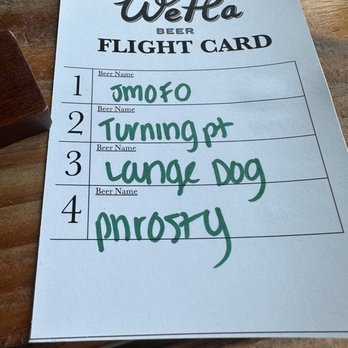 WeHa
BEER
FLIGHT CARD
1 Beer Name
JMOFO
2 Beer Name
Turning pt
3 Beer Name
Lange Dog
4 Beer Name
phrosty